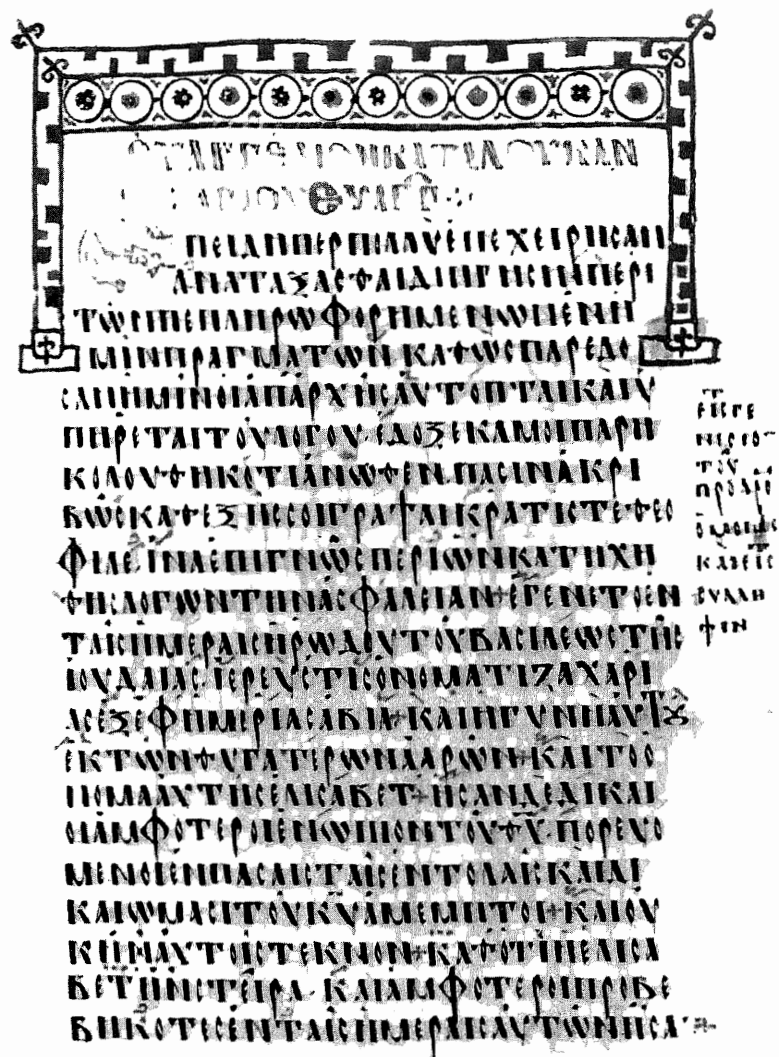 ΕΥΑΓΓΕΛΙΟΝΚΑΤΑΛΟΥΚΑΝ
ΠΕΙΔΗΠΕΡΠΟΛΛΟΙΕΠΕΧΕΙΡΗCΑΝ
ΑΝΑΤΑΞΑCΘΑΙΔΙΗΓΗCΙΝΠΕΡΙ
ΤΩΝΠΕΠΛΗΡΩΦΟΡΗΜΕΝΩΝΕΝΗ
ΜΙΝΠΡΑΓΜΑΤΩΝΚΑΘΩCΠΑΡΕΔΟ
CΑΝΗΜΙΝΟΙΑΠΑΡΧΗCΑΥΤΟΠΤΑΙΚΑΙΥ
ΠΗΡΕΤΑΙΤΟΥΛΟΓΟΥ·ΕΔΟΞΕΚΑΜΟΙΠΑΡΗ
ΚΟΛΟΥΘΗΚΟΤΙΑΝΩΘΕΝ·ΠΑCΙΝΑΚΡΙ
ΒΩCΚΑΘΕΞΗCCΟΙΓΡΑΨΑΙΚΡΑΤΙCΤΕΘΕΟ
ΦΙΛΕ·ΙΝΑΕΠΙΓΝΩCΠΕΡΙΩΝΚΑΤΗΧΗ
ΘΗCΛΟΓΩΝΤΗΝΑCΦΑΛΕΙΑΝ+ΕΓΕΝΕΤΟΕΝ
ΤΑΙCΗΜΕΡΑΙCΗΡΩΔΟΥΤΟΥΒΑCΙΛΕΩCΤΗC
ΙΟΥΔΑΙΑC·ΙΕΡΕΥCΤΙCΟΝΟΜΑΤΙΖΑΧΑΡΙ
ΑCΕΞΕΦΗΜΕΡΙΑCΑΒΙΑ+ΚΑΙΗΓΥΝΗΑΥΤȢ
ΕΚΤΩΝΘΥΓΑΤΕΡΩΝΑΑΡΩΝ+ΚΑΙΤΟΟ
ΝΟΜΑΑΥΤΗCΕΛΙCΑΒΕΤ+ΗCΑΝΔΕΔΙΚΑΙ
ΟΙΑΜΦΟΤΕΡΟΙΕΝΩΠΙΟΝΤΟΥΘΥ·ΠΟΡΕΥΟ
ΜΕΝΟΙΕΝΠΑCΑΙCΤΑΙCΕΝΤΟΛΑΙCΚΑΙΔΙ
ΚΑΙΩΜΑCΙΤΟΥΚΥΑΜΕΜΠΤΟΙ+ΚΑΙΟΥ
ΚΗΝΑΥΤΟΙCΤΕΚΝΟΝ+ΚΑΘΟΤΙΗΕΛΙCΑ
ΒΕΤΗΝCΤΕΙΡΑ·ΚΑΙΑΜΦΟΤΕΡΟΙΠΡΟΒΕ
ΒΗΚΟΤΕCΕΝΤΑΙCΗΜΕΡΑΙCΑΥΤΩΝΗCΑ
ΕΙCΓΕ
ΤΟΥ
ΠΡΟΔΡΟ
CΥΛΛΗ
ΨΙΝ